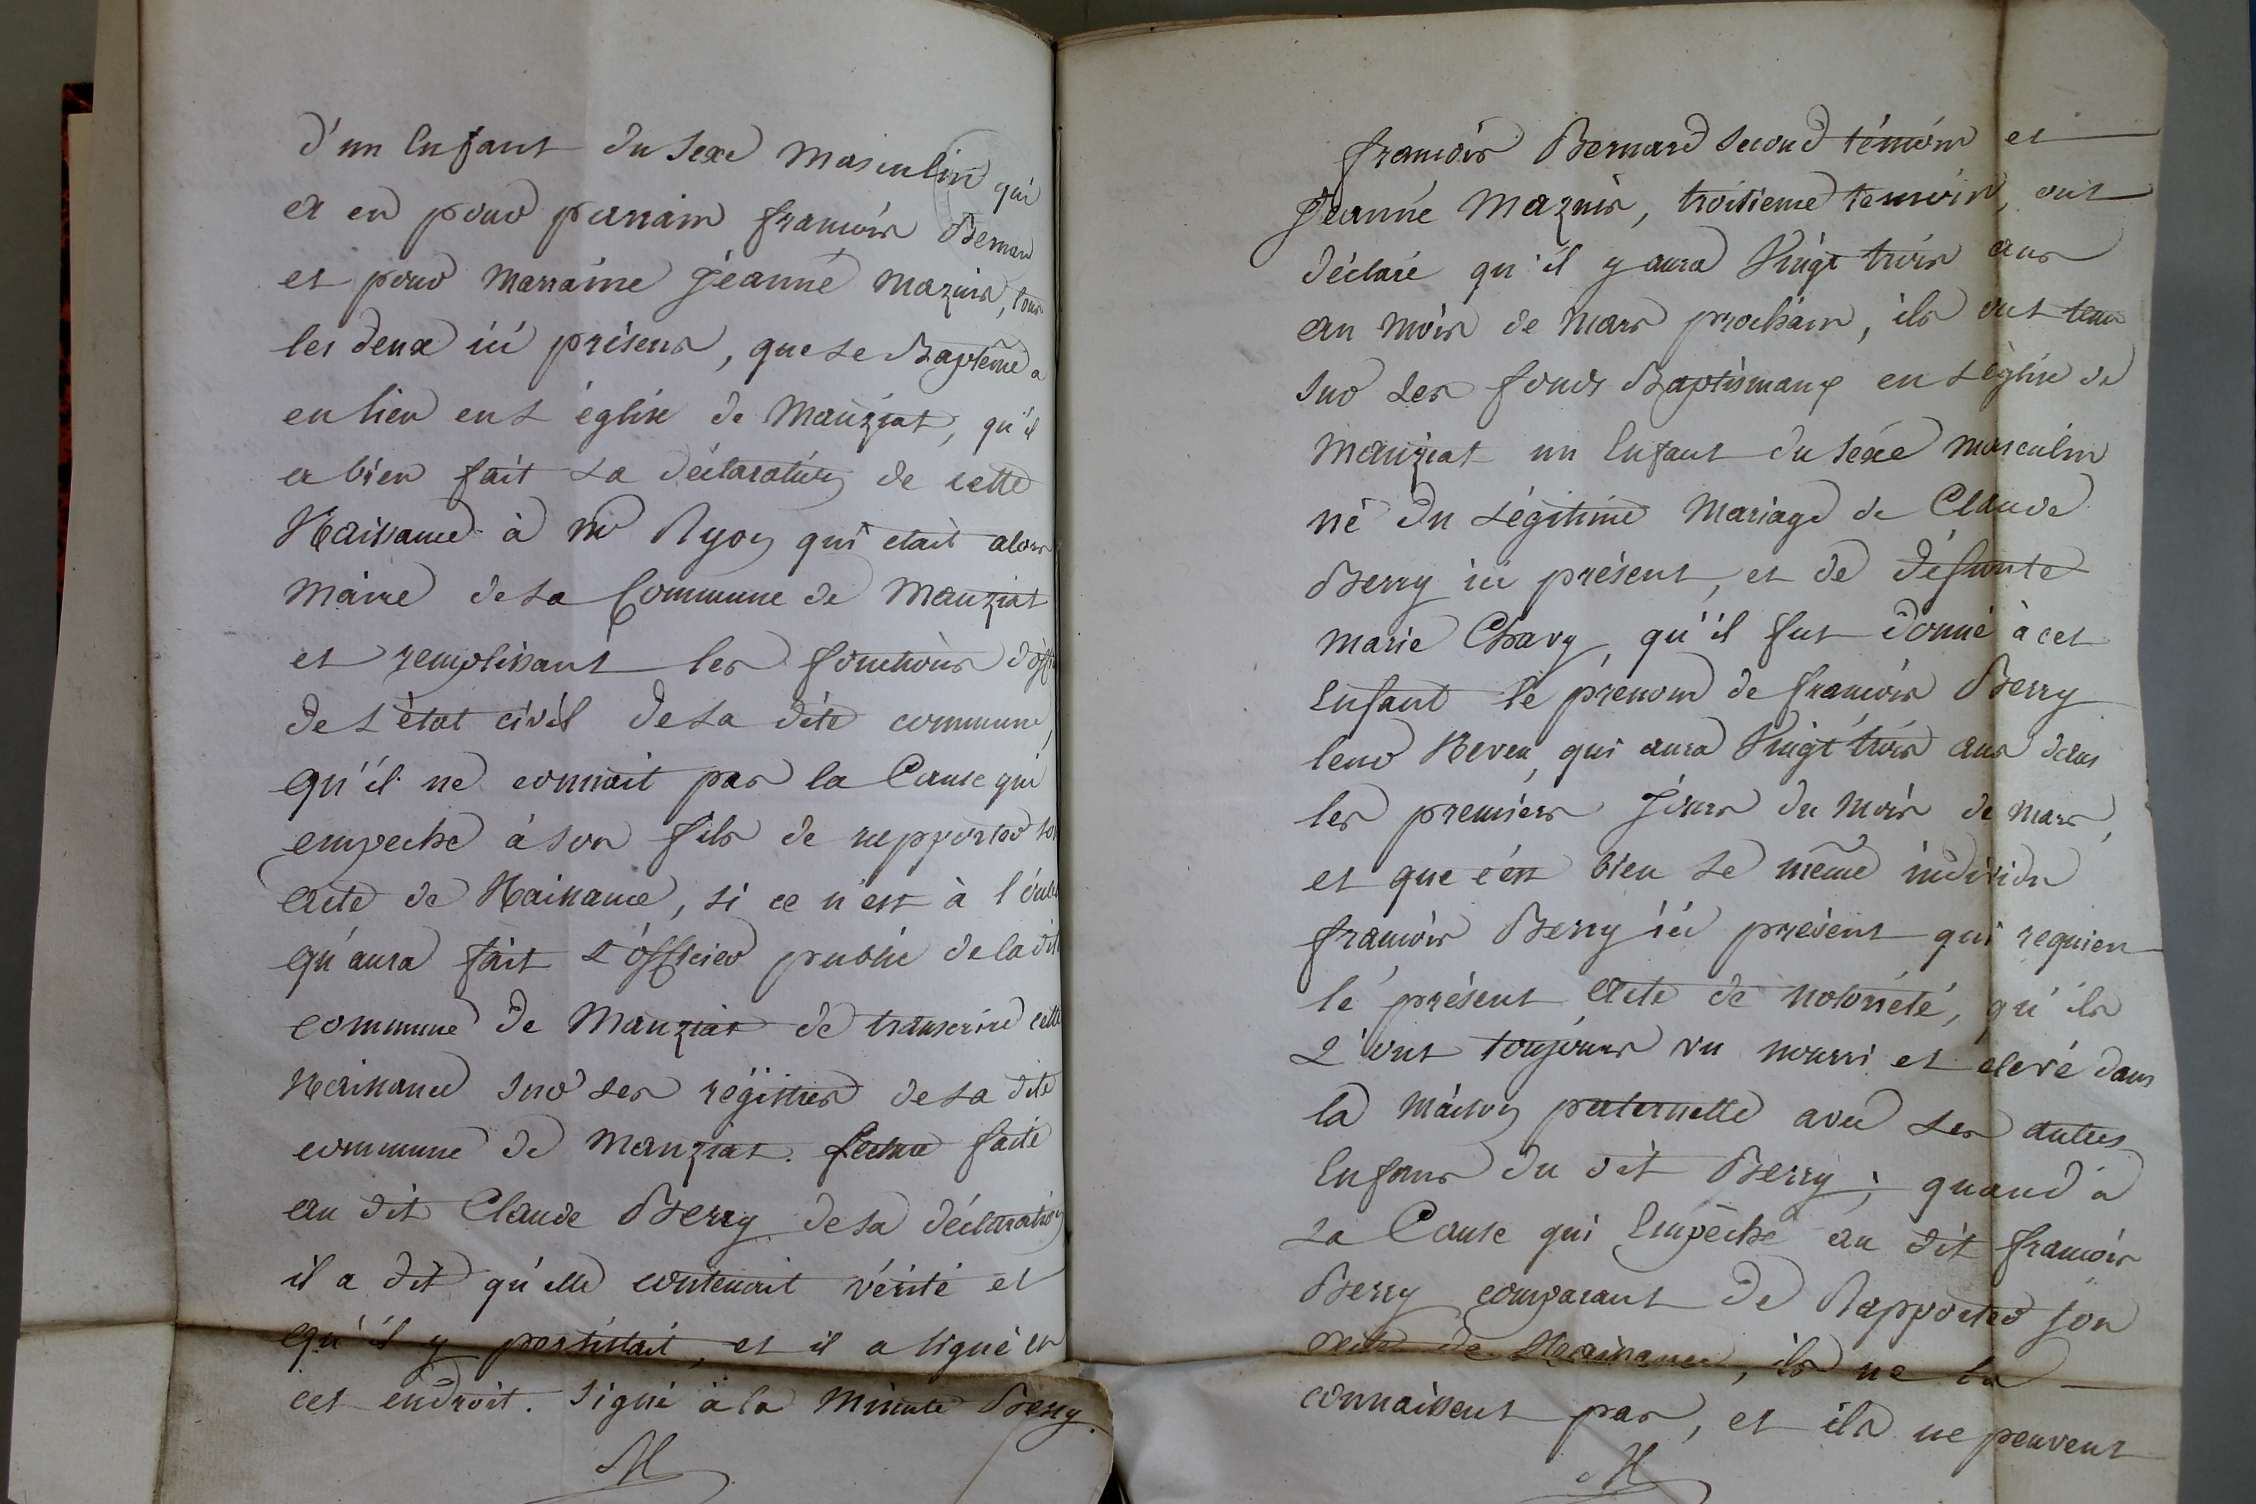 d'un Enfant du sexe masculin qui
a eu pour parrain françois Bernard
et pour marraine Jeanne Mazuis, tous
les deux ici présens, que le Baptême a
eu lieu en l'église de Manziat, qu'il
a bien fait la déclaration de cette
Naissance à mr Ryon qui était alors
maire de la Commune de Manziat
et remplissant les fonctions d'offi
de l'état civil de la dite commune,
qu'il ne connait pas la Cause qui
empeche à son fils de rapporter son
acte de Naissance, si ce n'est à l'oubli
qu'aura fait l'officier public de la dite
commune de Manziat de transcrire cette
Naissance sur les régistres de la dite
commune de Manziat. Lecture faite
au dit Claude Berry de sa déclaration
il a dit qu'elle contenait vérité et
qu'il y persistait, et il a signé en
cet endroit. signé à la minute Berry.
françois Bernard second témoin et
Jeanne Mazuis, troisieme temoin, ont
déclaré qu'il y aura Vingt trois ans
au mois de mars prochain, ils ont tenu
sur les fonds Baptismaux en l'église de
Manziat un Enfant du sexe masculin
né du légitime mariage de Claude
Berry ici présent, et de défunte
marie Chavy, qu'il fut donné à cet
Enfant le prenom de françois Berry
leur Neveu, qui aura Vingt trois ans dans
les premiers Jours du mois de mars,
et que c'est bien le même individu
françois Berry ici présent qui requien
le présent acte de notoriété, qu'ils
l'ont toujours vu nourri et élevé dans
la maison paternelle avec les autres
Enfans du dit Berry; quand à
la Cause qui Empêche au dit françois
Berry comparant de Rapporter son
acte de Naissance, ils ne la
connaissent pas, et ils ne peuvent